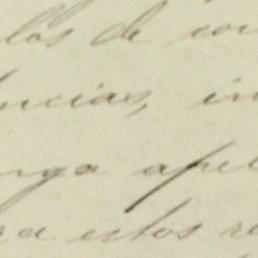 los de con
ncias, in
nga apel
ra estos re